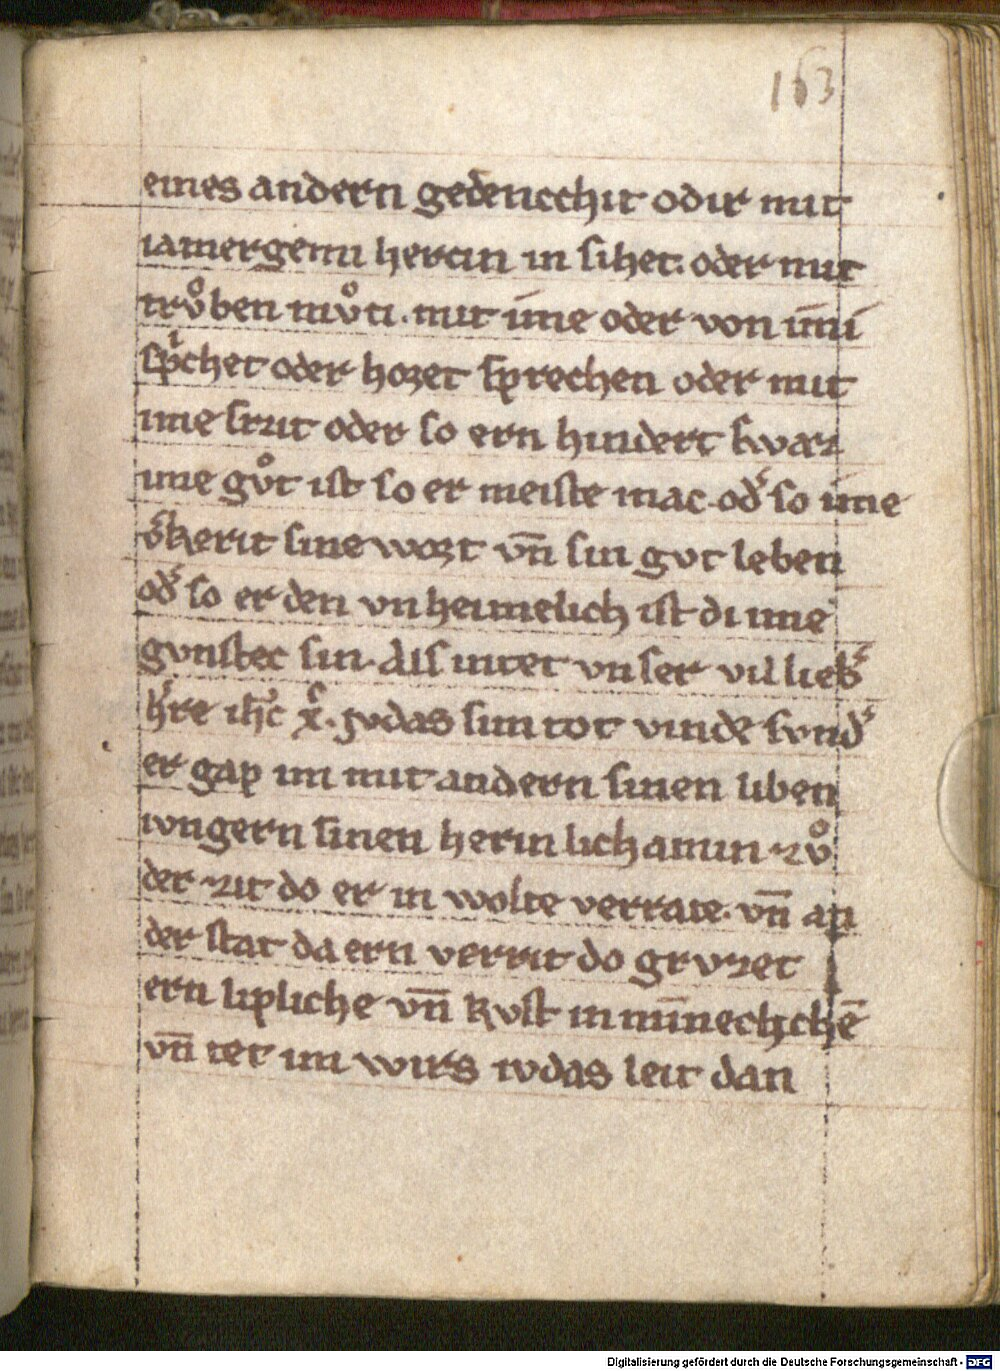 163
eines andern gedencchit odir mit
iamergemi hercin in sihet. oder mit
trůben můti. mit īme oder von īmi
spͥchet oder horet sprechen oder mit
ime srzit oder so ern hindert swaz
ime gůt ist so er meiste mac. od̾ so īme
v̾kerit sine wort vn̄ sin gvt leben
od̾ so er den vnheimelich ist di ime
gvnstec sin. Als intet vnser vil lieb̾
h̾re ih̄c x̄. jvdas sim tot vinde svnd̾
er gap im mit andern sinen liben
ivngern sinen herin lichamin. zů
der zit do er in wolte verrate. vn̄ an
der stat da ern verrit do grvzet
ern lipliche vn̄ kvst in minnechchē
vn̄ tet im wirs ivdas leit dan
Digitalisierung gefördert durch die Deutsche Forschungsgemeinschaft - DFG